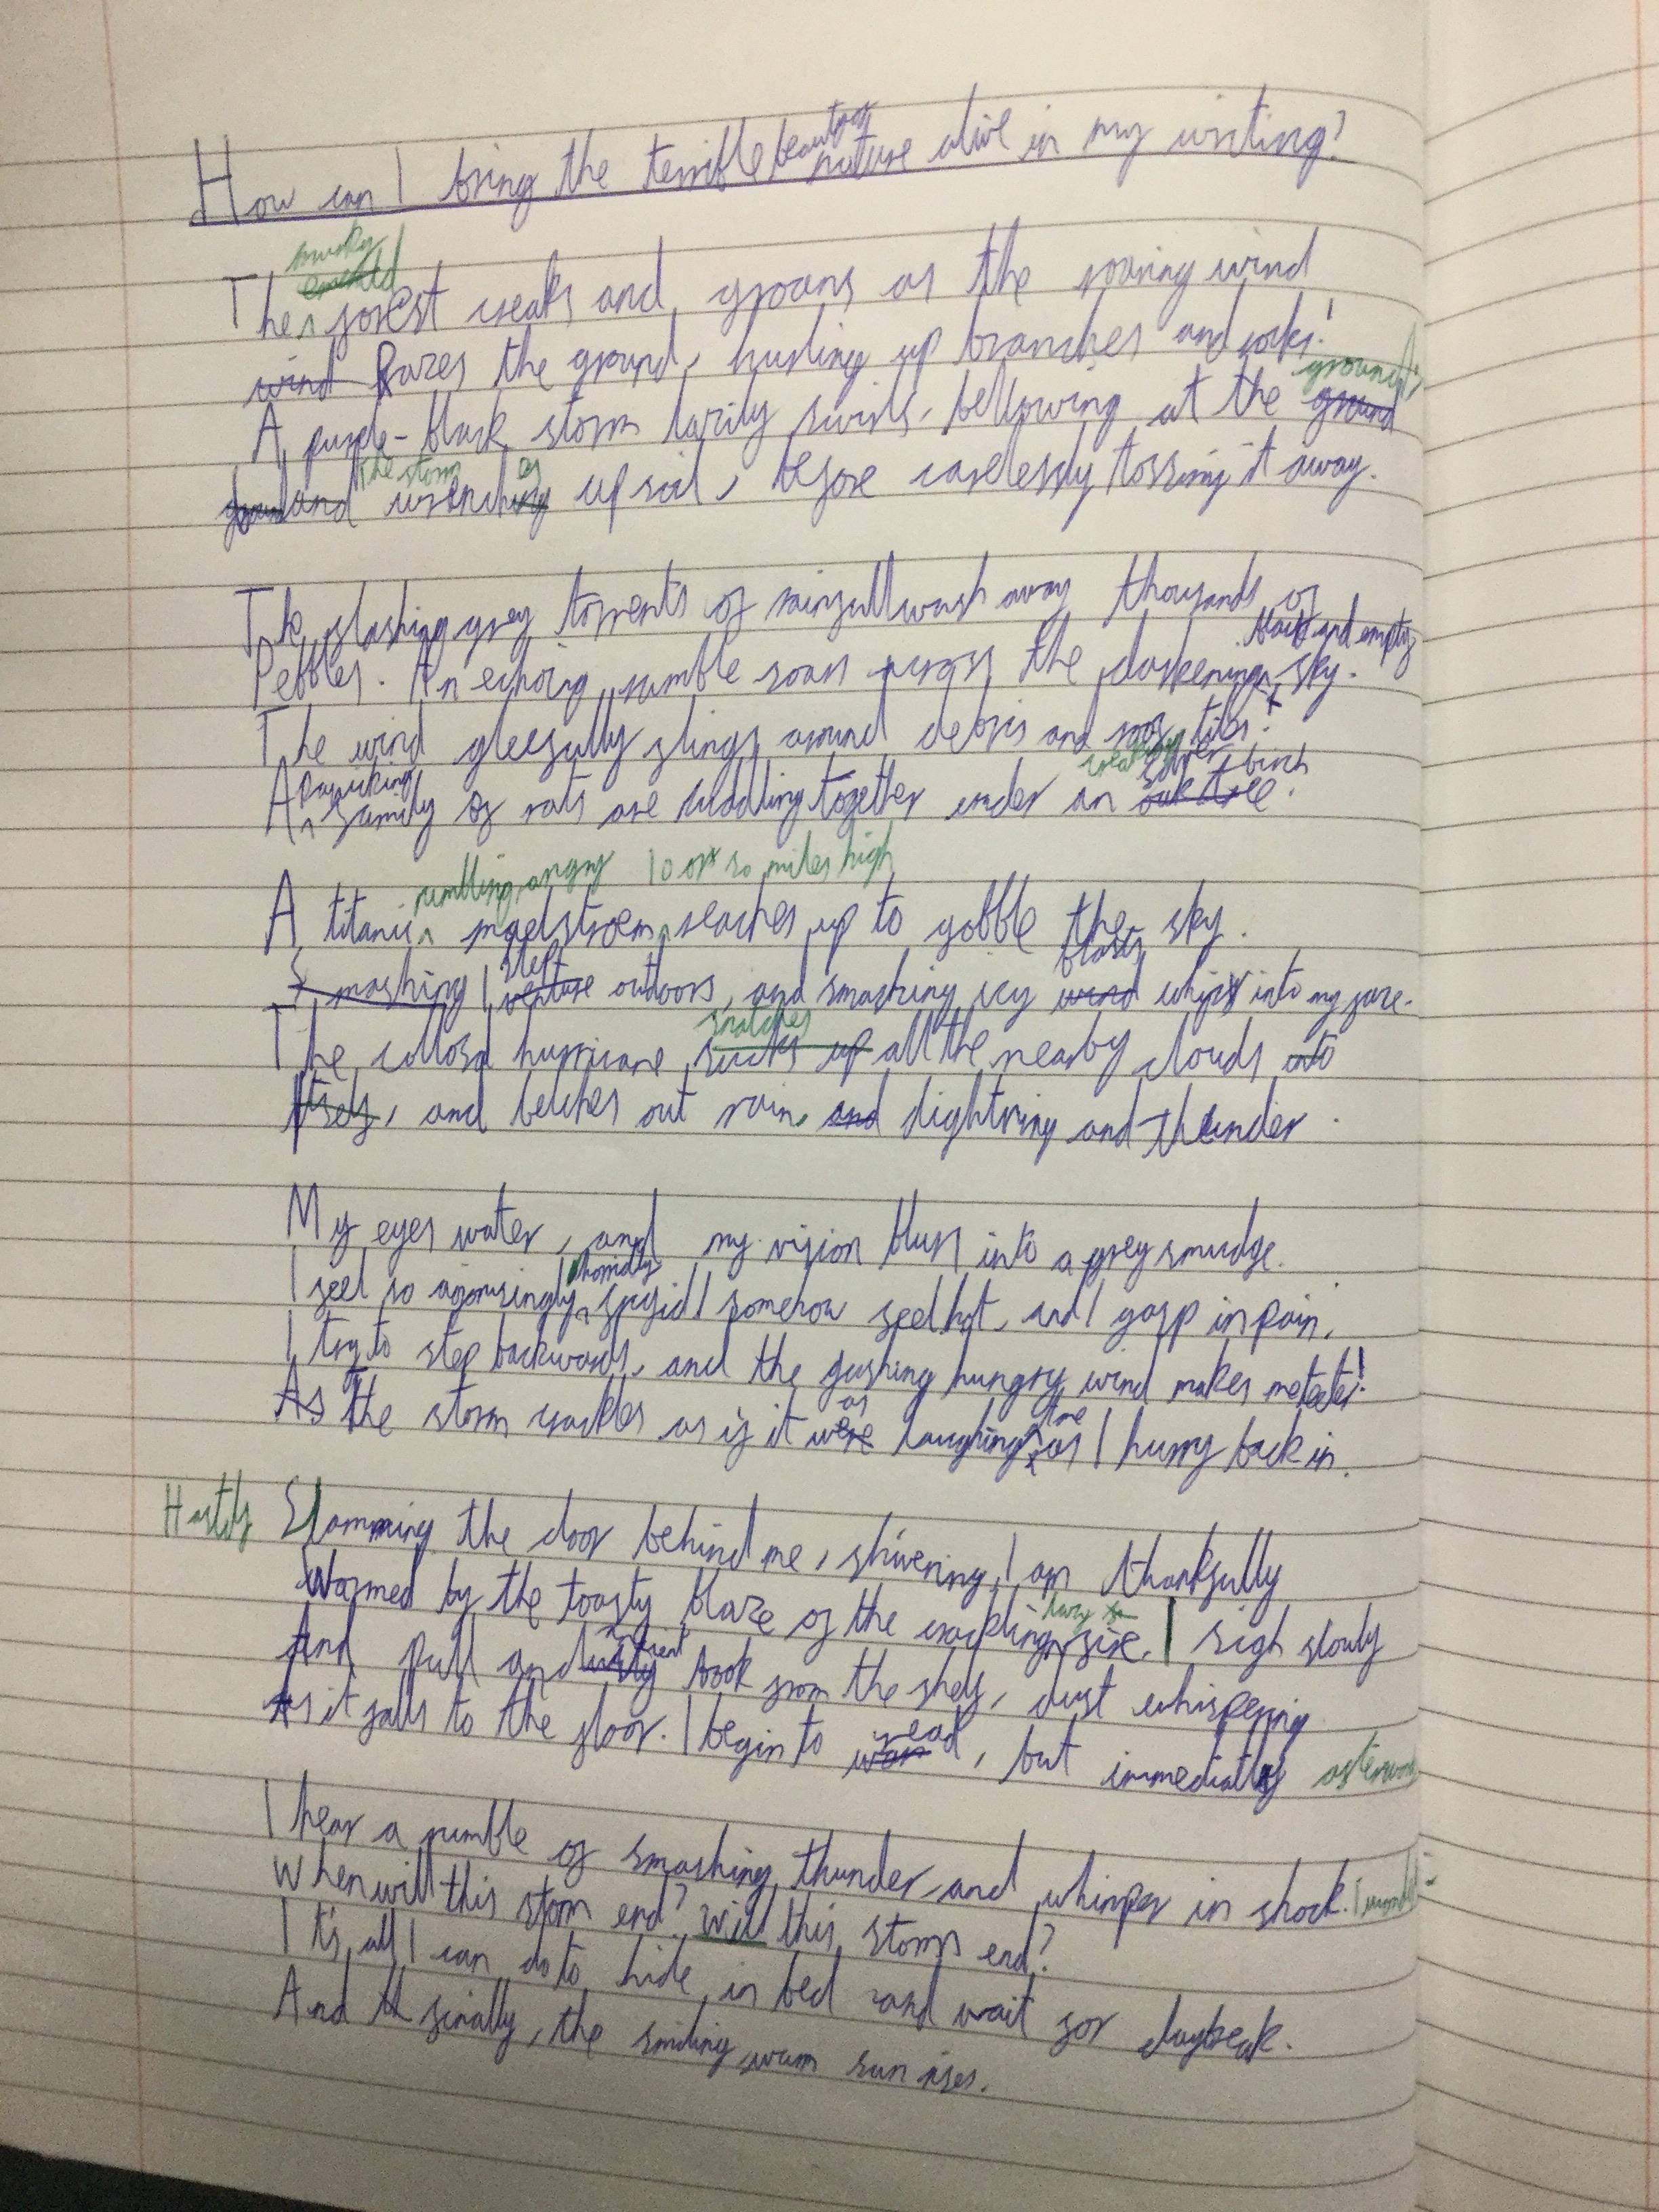 How can I bring the terrible beauty of nature alive in my writing?
The murky forest creaks and groans as the roaring wind
wind Razes the ground, hurling up branches and rocks!
A purple-black storm lazily swirls, bellowing at the ground
and the storm wrenches up soil, before carelessly tossing it away.
The slashing grey torrents of rainfall wash away thousands of
Pebbles. An echoing rumble roars across the darkening black and empty sky.
The wind gleefully flings around debris and roof tiles!
A panicking family of rats are huddling together under an silver birch
A titanic rumbling, angry maelstroem 10 or so miles high reaches up to gobble the sky.
Smashing I step outdoors, and smashing icy blasts whips into my face.
The collosal hurricane snatches all the nearby clouds into
itself, and belches out rain, and lightning and thunder.
My eyes water, and my vision blurs into a grey smudge.
I feel so agonisingly, horridly frigid I somehow feel hot, and I gasp in pain.
I try to step backwards, and the gushing hungry wind makes me teeter!
As the storm crackles as if it was laughing at me as I hurry back in.
Hastily Slamming the door behind me, shivering, I am thankfully
Warmed by the toasty blaze of the crackling fire. I sigh slowly
And pull an ancient book from the shelf, dust whispering
As it falls to the floor. I begin to read, but immediatly afterwards
I hear a rumble of smashing thunder, and whimper in shock.
When will this storm end? Will this storm end?
It's all I can do to hide in bed and wait for daybreak.
And finally, the smiling warm sun rises.